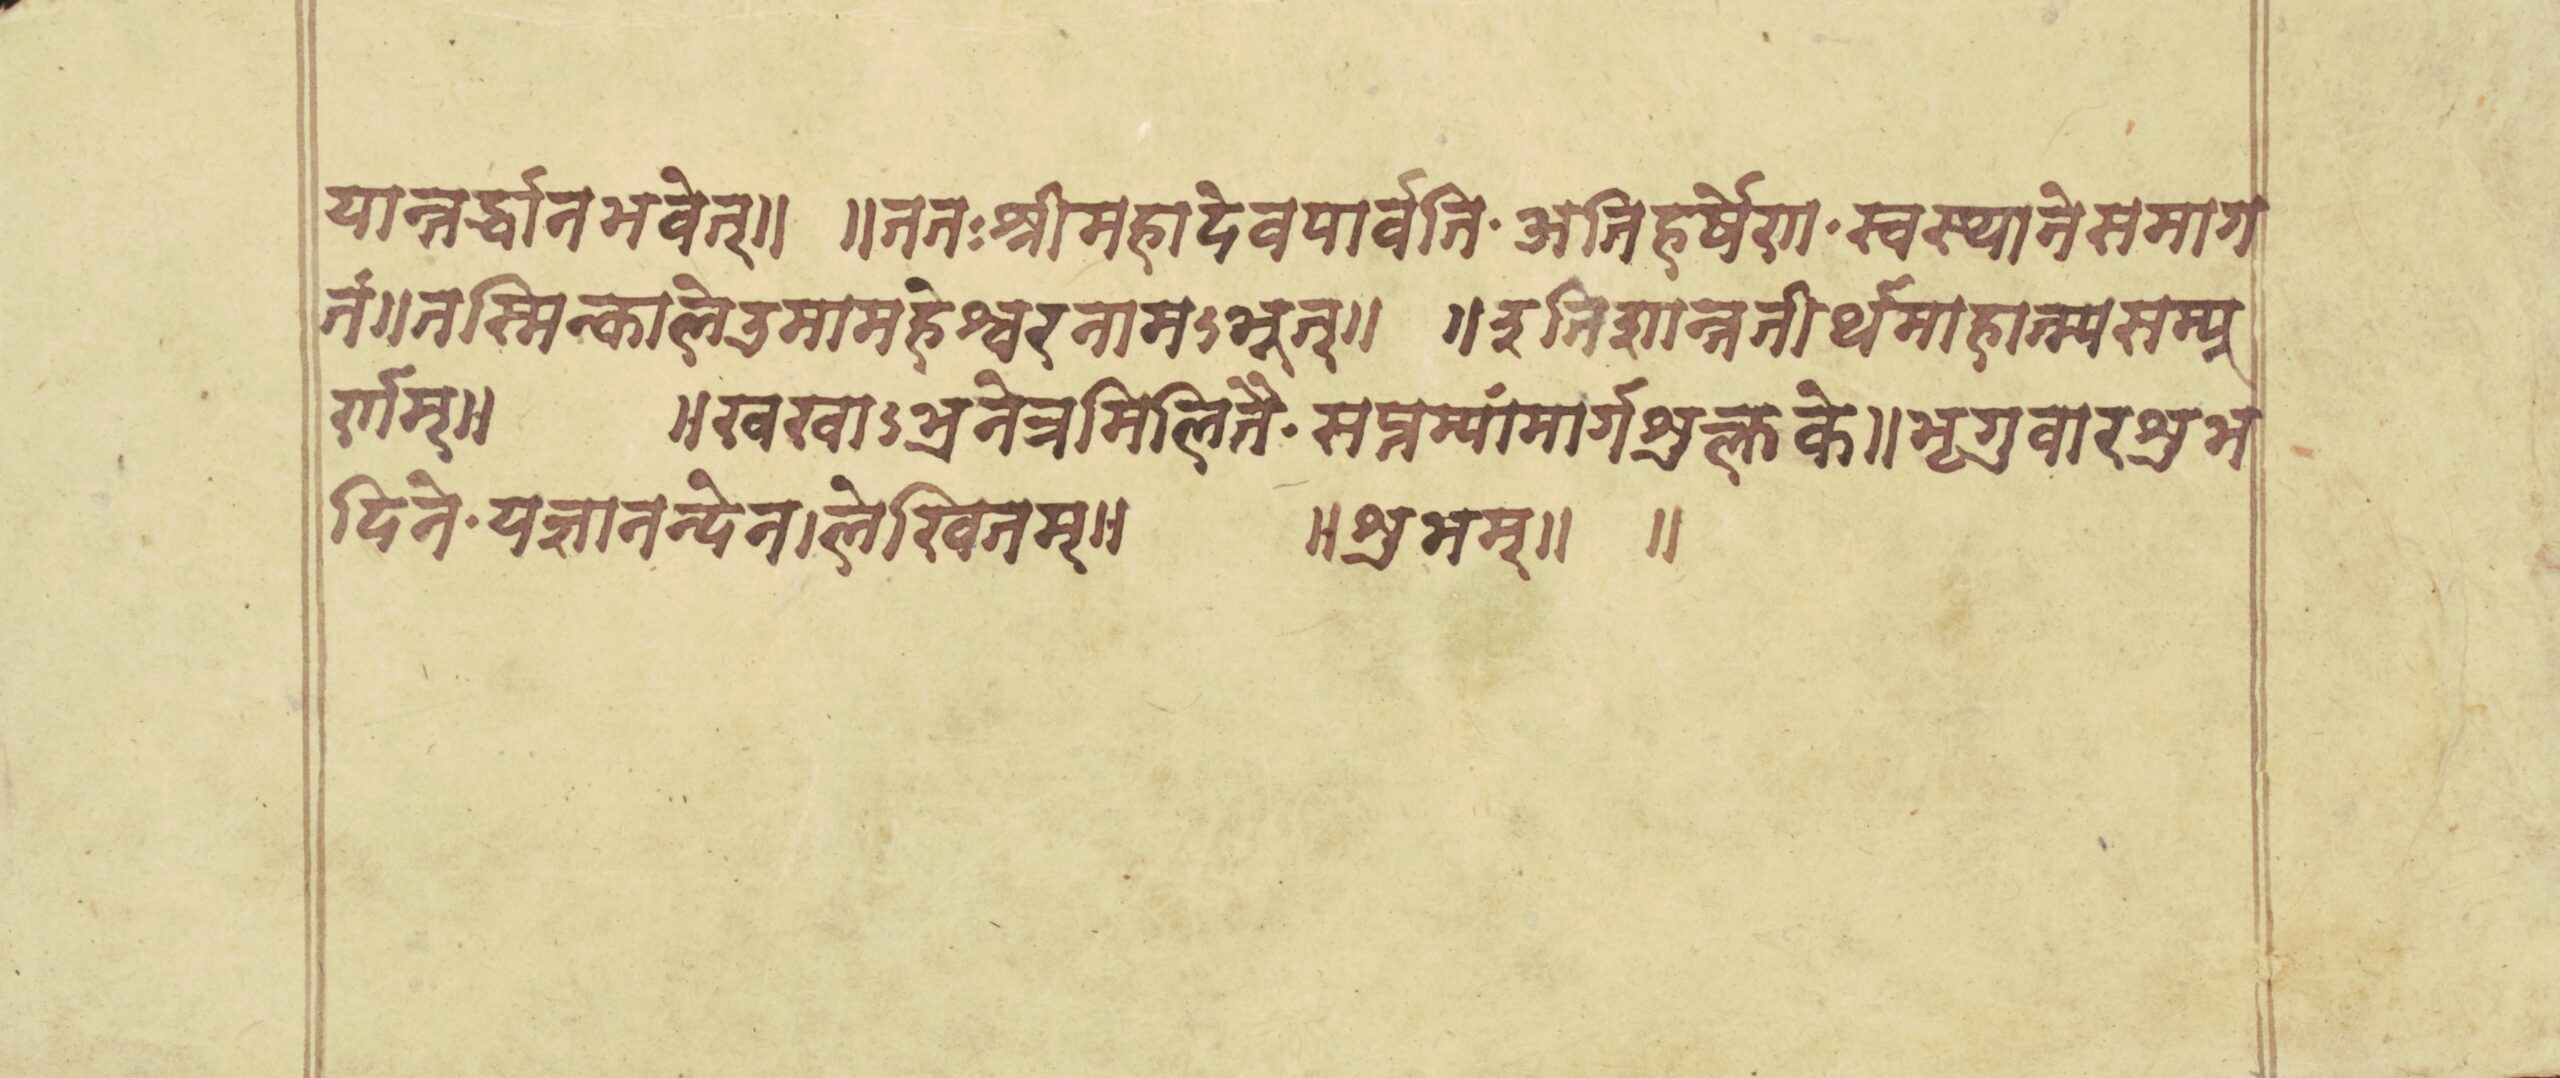 यान्तर्द्धानभवेत्॥ ॥ततःश्रीमहादेवपार्वति·अतिहर्षेण·स्वस्थानेसमाग
तं॥तस्मिन्कालेउमामहेश्वरनामऽभूत्॥ ॥इतिशान्ततीर्थमाहात्म्यसम्पू
र्णम्॥ ॥खखाऽभ्रनेत्रमिलितै·सप्तम्यांमार्गशुक्लके॥भृगुवारशुभ
दिने·यज्ञानन्देन।लेखितम्॥ ॥शुभम्॥ ॥